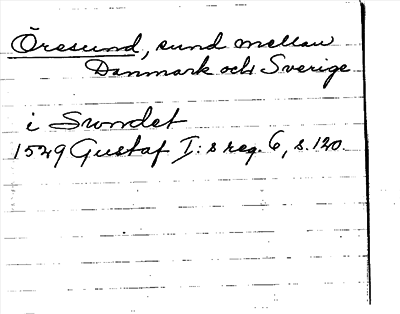 Öresund, sund mellan
Danmark och Sverige
i Swndet
1529 Gustaf I:s reg. 6, s. 120.